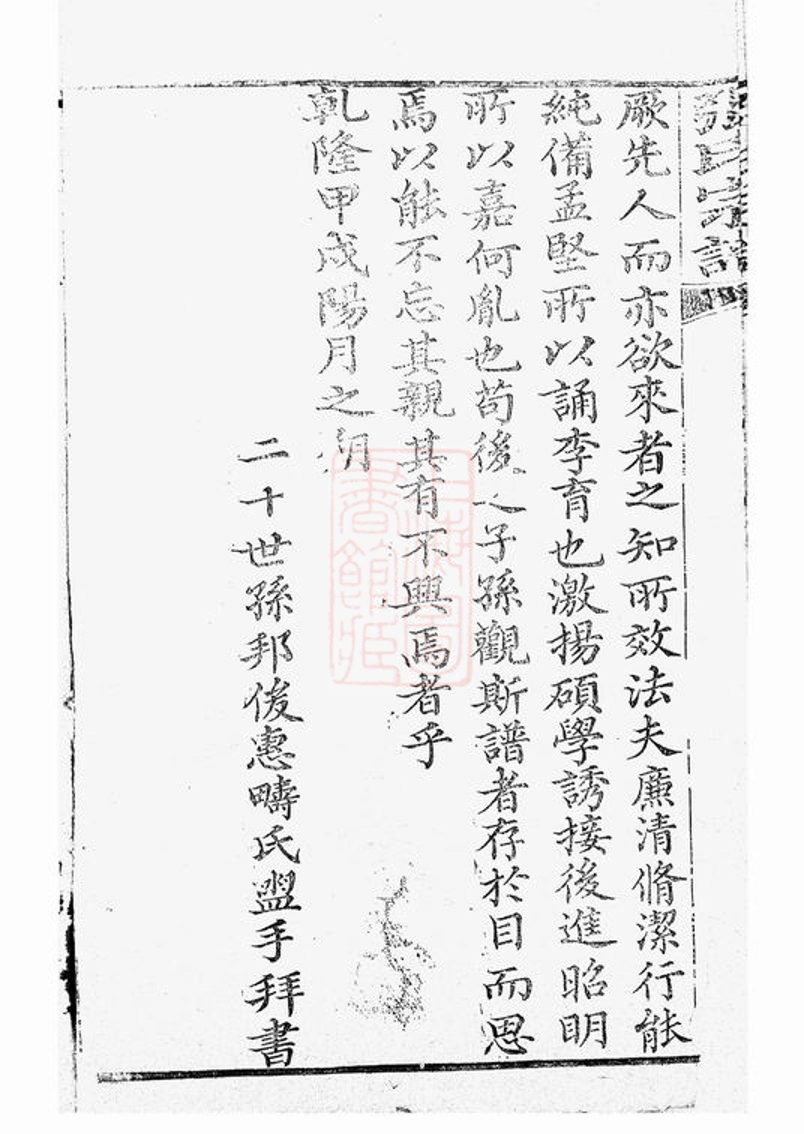 張氏宗譜
厥先人而亦欲來者之知所效法夫廉清脩潔行能
純備孟堅所以誦李育也激揚碩學誘接後進昭明
所以嘉何胤也苟後之子孫觀斯譜者存於目而思
焉以能不忘其親其有不興焉者乎
乾隆甲戌陽月之朔
二十世孫邦俊惠疇氏盥手拜書
上海圖
書館藏